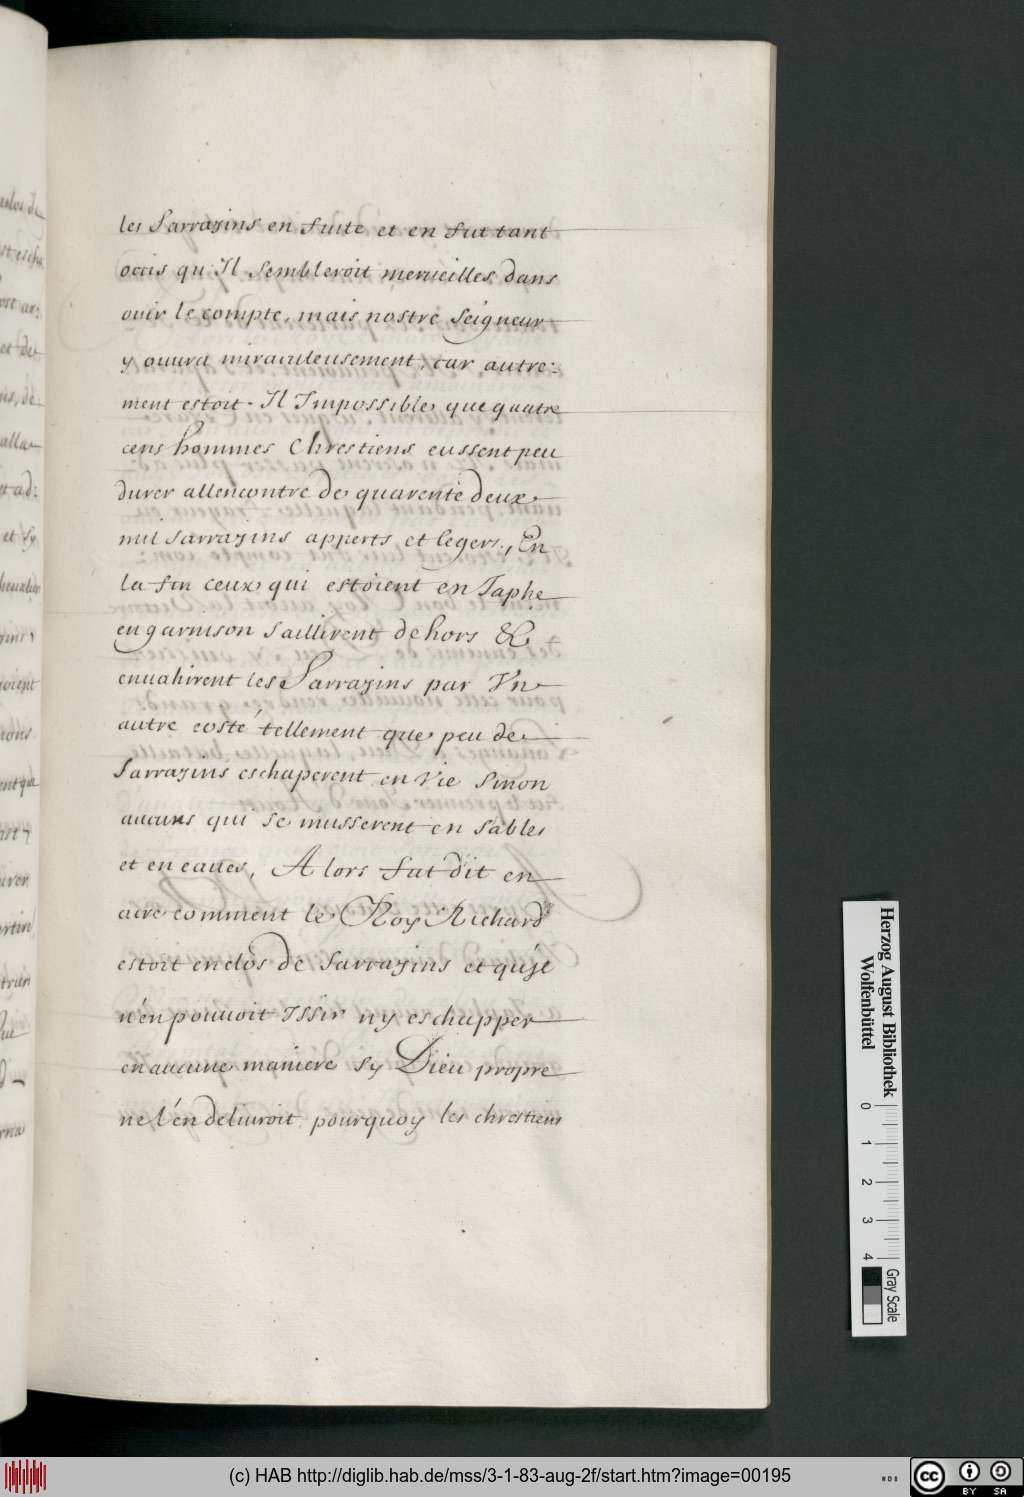 les Sarrazins en fuite et en fut tant
occis qu'Il sembleroit merueilles dans
ouir le compte, mais nostre Seigneur
y ouura miraculeusement, car autre:
ment estoit Il Impossible que quatre
cens hommes Chrestiens eussent peu
durer allencontre de quarente deux
mil Sarrazins apperts et legers, En
la fin ceux qui estoient en Japhe
en garnison saillirent dehors &
enuahirent les Sarrazins par Vn
autre costé tellement que peu de
Sarrazins eschaperent en vie sinon
aucuns qui se musserent en sables
et en eaues, Alors fut dit en
acre comment le Roy Richard
estoit enclos de Sarrazins et qu'je
n'en pouuoit Issir ny eschapper
en aucune maniere sy Dieu propre
ne l'en deliuroit, pourquoy les chrestiens
Herzog August Bibliothek
Wolfenbüttel
0 1 2 3 4
Gray Scale
(c) HAB http://diglib.hab.de/mss/3-1-83-aug-2f/start.htm?image=00195
cc BY SA